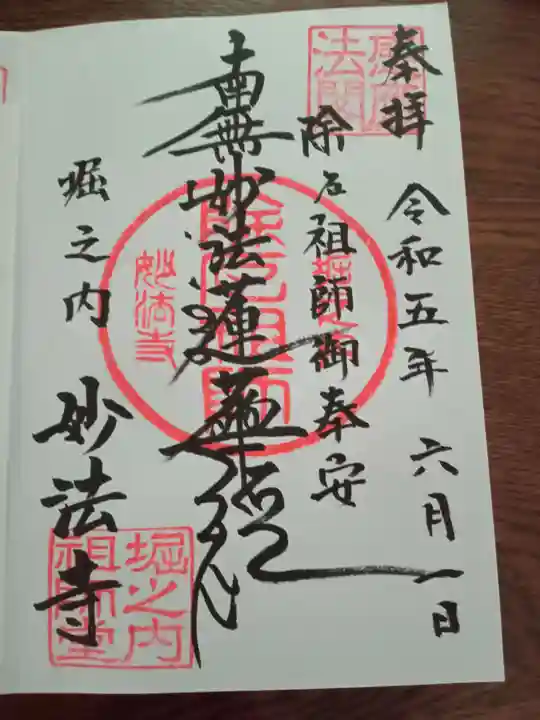 奉拝
令和五年 六月一日
除厄祖師御奉安
南無妙法蓮華経
堀之内
妙法寺
除厄祖師
妙法寺
堀之内
祖師堂